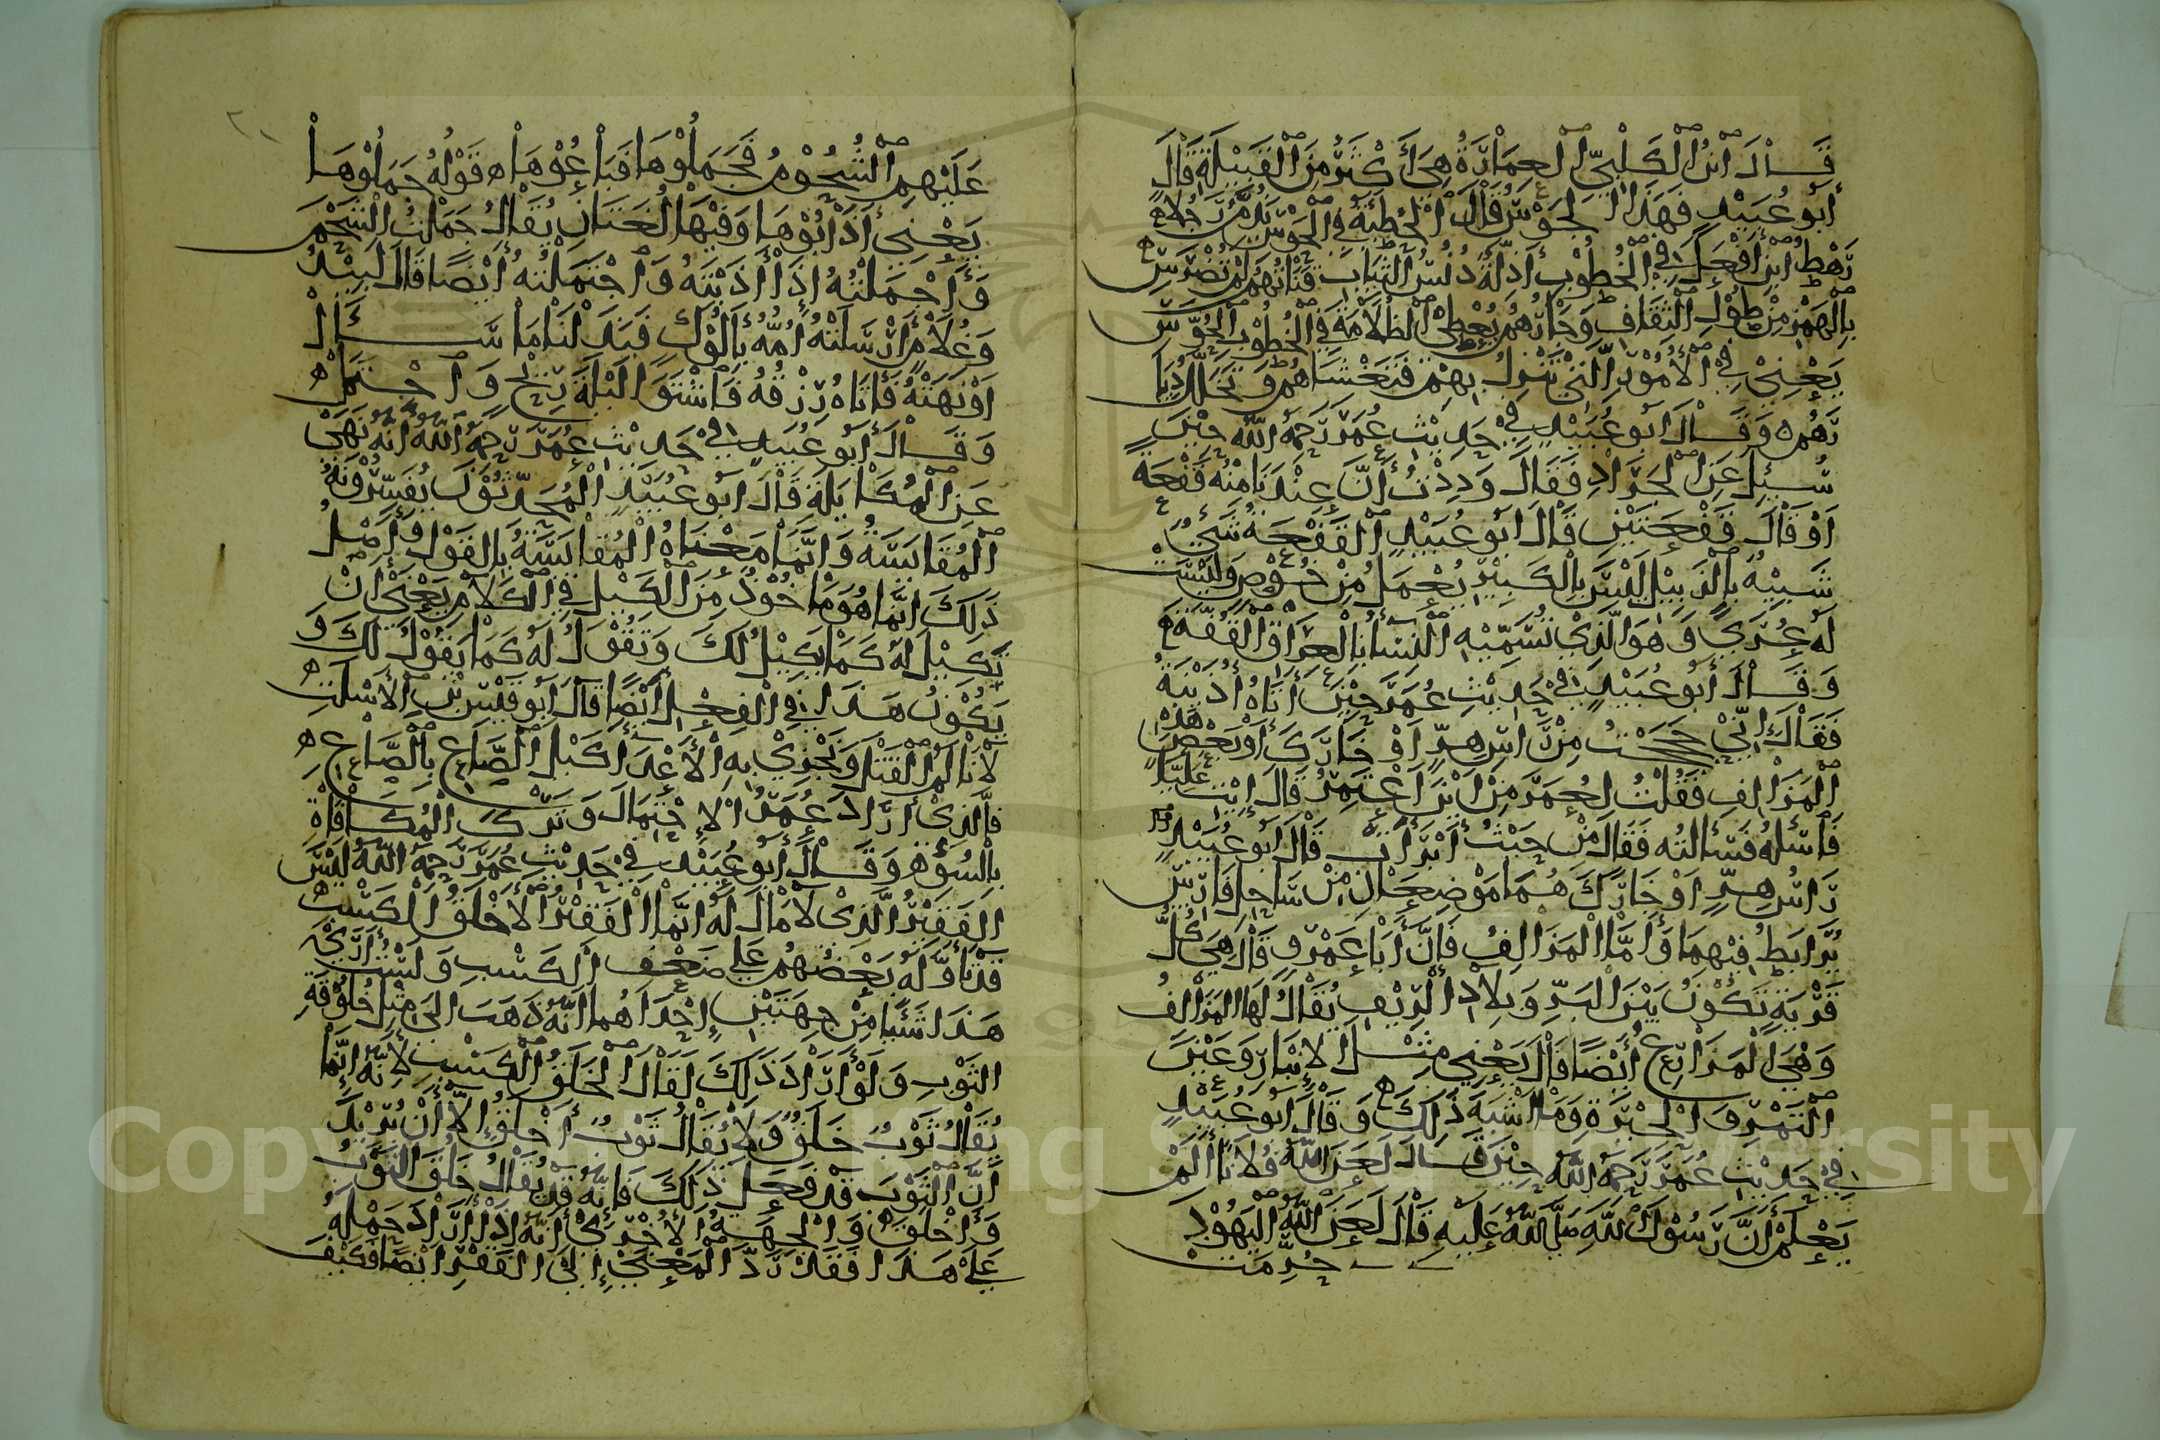 قَالَ ابْنُ الْكَلْبِيِّ الْعِمَارَةُ هِيَ أَكْثَرُ مِنَ الْقَبِيْلَةِ قَالَ
أَبُو عُبَيْدٍ فَهَذَا الْحُوْسُ قَالَ الْحُطَيْئَةُ فِي الْحُوْسِ يَذُمُّ رَجُلًا
رَهْطُ ابْنِ أَفْعَلَ فِي الْخُطُوْبِ أَذِلَّةٌ دُنُسُ الثِّيَابِ قَنَاتُهُمْ لَمْ تُضْرَسِ
بِالْهَمْزِ مِنْ طُوْلِ الثِّقَافِ وَجَارُهُمْ يُعْطِي الظُّلَامَةَ فِي الْخُطُوْبِ الْحُوَّسِ
يَعْنِيْ فِي الْأُمُوْرِ الَّتِيْ تَنْزِلُ بِهِمْ فَتَغْشَاهُمْ وَتَخَلَّلُ دِيَا
رَهُمْ وَقَالَ أَبُو عُبَيْدٍ فِيْ حَدِيْثِ عُمَرَ رَحِمَهُ اللَّهُ حِيْنَ
سُئِلَ عَنِ الْجَرَادِ فَقَالَ وَدِدْتُ أَنَّ عِنْدَنَا مِنْهُ قَفْعَةً
أَوْ قَالَ قَفْعَتَيْنِ قَالَ أَبُو عُبَيْدٍ الْقَفْعَةُ شَيْءٌ
شَبِيْهٌ بِالزَّبِيْلِ لَيْسَ بِالْكَبِيْرِ يُعْمَلُ مِنْ خُوْصٍ وَلَيْسَتْ
لَهُ عُرًى وَهُوَ الَّذِيْ تُسَمِّيْهِ النِّسَاءُ بِالْعِرَاقِ الْقُفَّةَ
وَقَالَ أَبُو عُبَيْدٍ فِيْ حَدِيْثِ عُمَرَ حِيْنَ أَتَاهُ أُذَيْنَةُ
فَقَالَ إِنِّيْ حَجَجْتُ مِنْ رَأْسِ هِرٍّ أَوْ خَارَكَ أَوْ بَعْضِ هَذِهِ
الْمَزَالِفِ فَقُلْتُ لِعُمَرَ مِنْ أَيْنَ أَعْتَمِرُ قَالَ إِيْتِ عَلِيًّا
فَاسْئَلْهُ فَسَأَلْتُهُ فَقَالَ مِنْ حَيْثُ ابْتَدَأْتَ قَالَ أَبُو عُبَيْدٍ
رَاسُ هِرٍّ أَوْ خَارَكَ هُمَا مَوْضِعَانِ مِنْ سَاحِلِ فَارِسَ
يُرَابَطُ فِيْهِمَا وَأَمَّا الْمَزَالِفُ فَإِنَّ أَبَا عَمْرٍو قَالَ هِيَ كُلُّ
قَرْيَةٍ تَكُوْنُ بَيْنَ الْبَرِّ وَبِلَادِ الرِّيْفِ يُقَالُ لَهَا الْمَزَالِفُ
وَهِيَ الْمَزَارِعُ أَيْضًا قَالَ يَعْنِي مِثْلَ الْأَنْبَارِ وَعَيْنِ
التَّمْرِ وَالْحِيْرَةِ وَمَا أَشْبَهَ ذَلِكَ وَقَالَ أَبُو عُبَيْدٍ
فِيْ حَدِيْثِ عُمَرَ رَحِمَهُ اللَّهُ حِيْنَ قَالَ لَعَنَ اللَّهُ فُلَانًا أَلَمْ
يَعْلَمْ أَنَّ رَسُوْلَ اللَّهِ صَلَّى اللَّهُ عَلَيْهِ قَالَ لَعَنَ اللَّهُ الْيَهُوْدَ
حُرِّمَتْ
عَلَيْهِمُ الشُّحُوْمُ فَجَمَلُوْهَا فَبَاعُوْهَا قَوْلُهُ جَمَلُوْهَا
يَعْنِي أَذَابُوْهَا وَفِيْهَا لُغَتَانِ يُقَالُ جَمَلْتُ الشَّحْمَ
وَأَجْمَلْتُهُ إِذَا أَذَبْتَهُ وَاجْتَمَلْتُهُ أَيْضًا قَالَ لَبِيْدٌ
وَغُلَامٍ أَرْسَلَتْهُ أُمُّهُ بِأَلُوْكٍ فَبَذَلْنَا مَا سَأَلْ
أَوْ نَهَتْهُ فَأَتَاهُ رِزْقُهُ فَاشْتَوَى لَيْلَةَ رِيْحٍ وَاجْتَمَلْ
وَقَالَ أَبُو عُبَيْدٍ فِيْ حَدِيْثِ عُمَرَ رَحِمَهُ اللَّهُ أَنَّهُ نَهَى
عَنِ الْمُكَايَلَةِ قَالَ أَبُو عُبَيْدٍ الْمُحَدِّثُوْنَ يُفَسِّرُوْنَهُ
الْمُقَايَسَةُ وَإِنَّمَا مَعْنَاهُ الْمُقَايَسَةُ بِالْقَوْلِ وَأَصْلُ
ذَلِكَ إِنَّمَا هُوَ مَأْخُوْذٌ مِنَ الْكَيْلِ فِي الْكَلَامِ يَعْنِيْ أَنْ
تَكِيْلَ لَهُ كَمَا يَكِيْلُ لَكَ وَتَقُوْلُ لَهُ كَمَا يَقُوْلُ لَكَ وَ
يَكُوْنُ هَذَا فِي الْفِعْلِ أَيْضًا قَالَ أَبُو قَيْسِ بْنِ الْأَسْلَتِ
لَا نَأْلَمُ الْقَتْلَ وَنَجْزِيْ بِهِ الْأَعْدَاءَ كَيْلَ الصَّاعِ بِالصَّاعِ
فَالَّذِيْ أَرَادَ عُمَرُ الِاحْتِمَالَ وَتَرْكَ الْمُكَافَاةِ
بِالسُّوْءِ وَقَالَ أَبُو عُبَيْدٍ فِيْ حَدِيْثِ عُمَرَ رَحِمَهُ اللَّهُ لَيْسَ
الْفَقِيْرُ الَّذِيْ لَا مَالَ لَهُ إِنَّمَا الْفَقِيْرُ الْأَخْلَقُ الْكَسْبِ
قَدْ تَأَوَّلَهُ بَعْضُهُمْ عَلَى ضَعْفِ الْكَسْبِ وَلَسْتُ أَرَى
هَذَا شَيْئًا مِنْ جِهَتَيْنِ إِحْدَاهُمَا أَنَّهُ ذَهَبَ إِلَى مِثْلِ خُلُوْقَةِ
الثَّوْبِ وَلَوْ أَرَادَ ذَلِكَ لَقَالَ الْخَلَقُ الْكَسْبِ لِأَنَّهُ إِنَّمَا
يُقَالُ ثَوْبٌ خَلَقٌ وَلَا يُقَالُ ثَوْبٌ أَخْلَقُ إِلَّا أَنْ تُرِيْدَ
أَنَّ الثَّوْبَ قَدْ فَعَلَ ذَلِكَ فَإِنَّهُ قَدْ يُقَالُ خَلُقَ الثَّوْبُ
وَأَخْلَقَ وَالْجِهَةُ الْأُخْرَى أَنَّهُ إِذَا أَرَادَ حَمْلَهُ
عَلَى هَذَا فَقَدْ رَدَّ الْمَعْنَى إِلَى الْفَقْرِ أَيْضًا فَكَيْفَ
Copyright © King Saud University